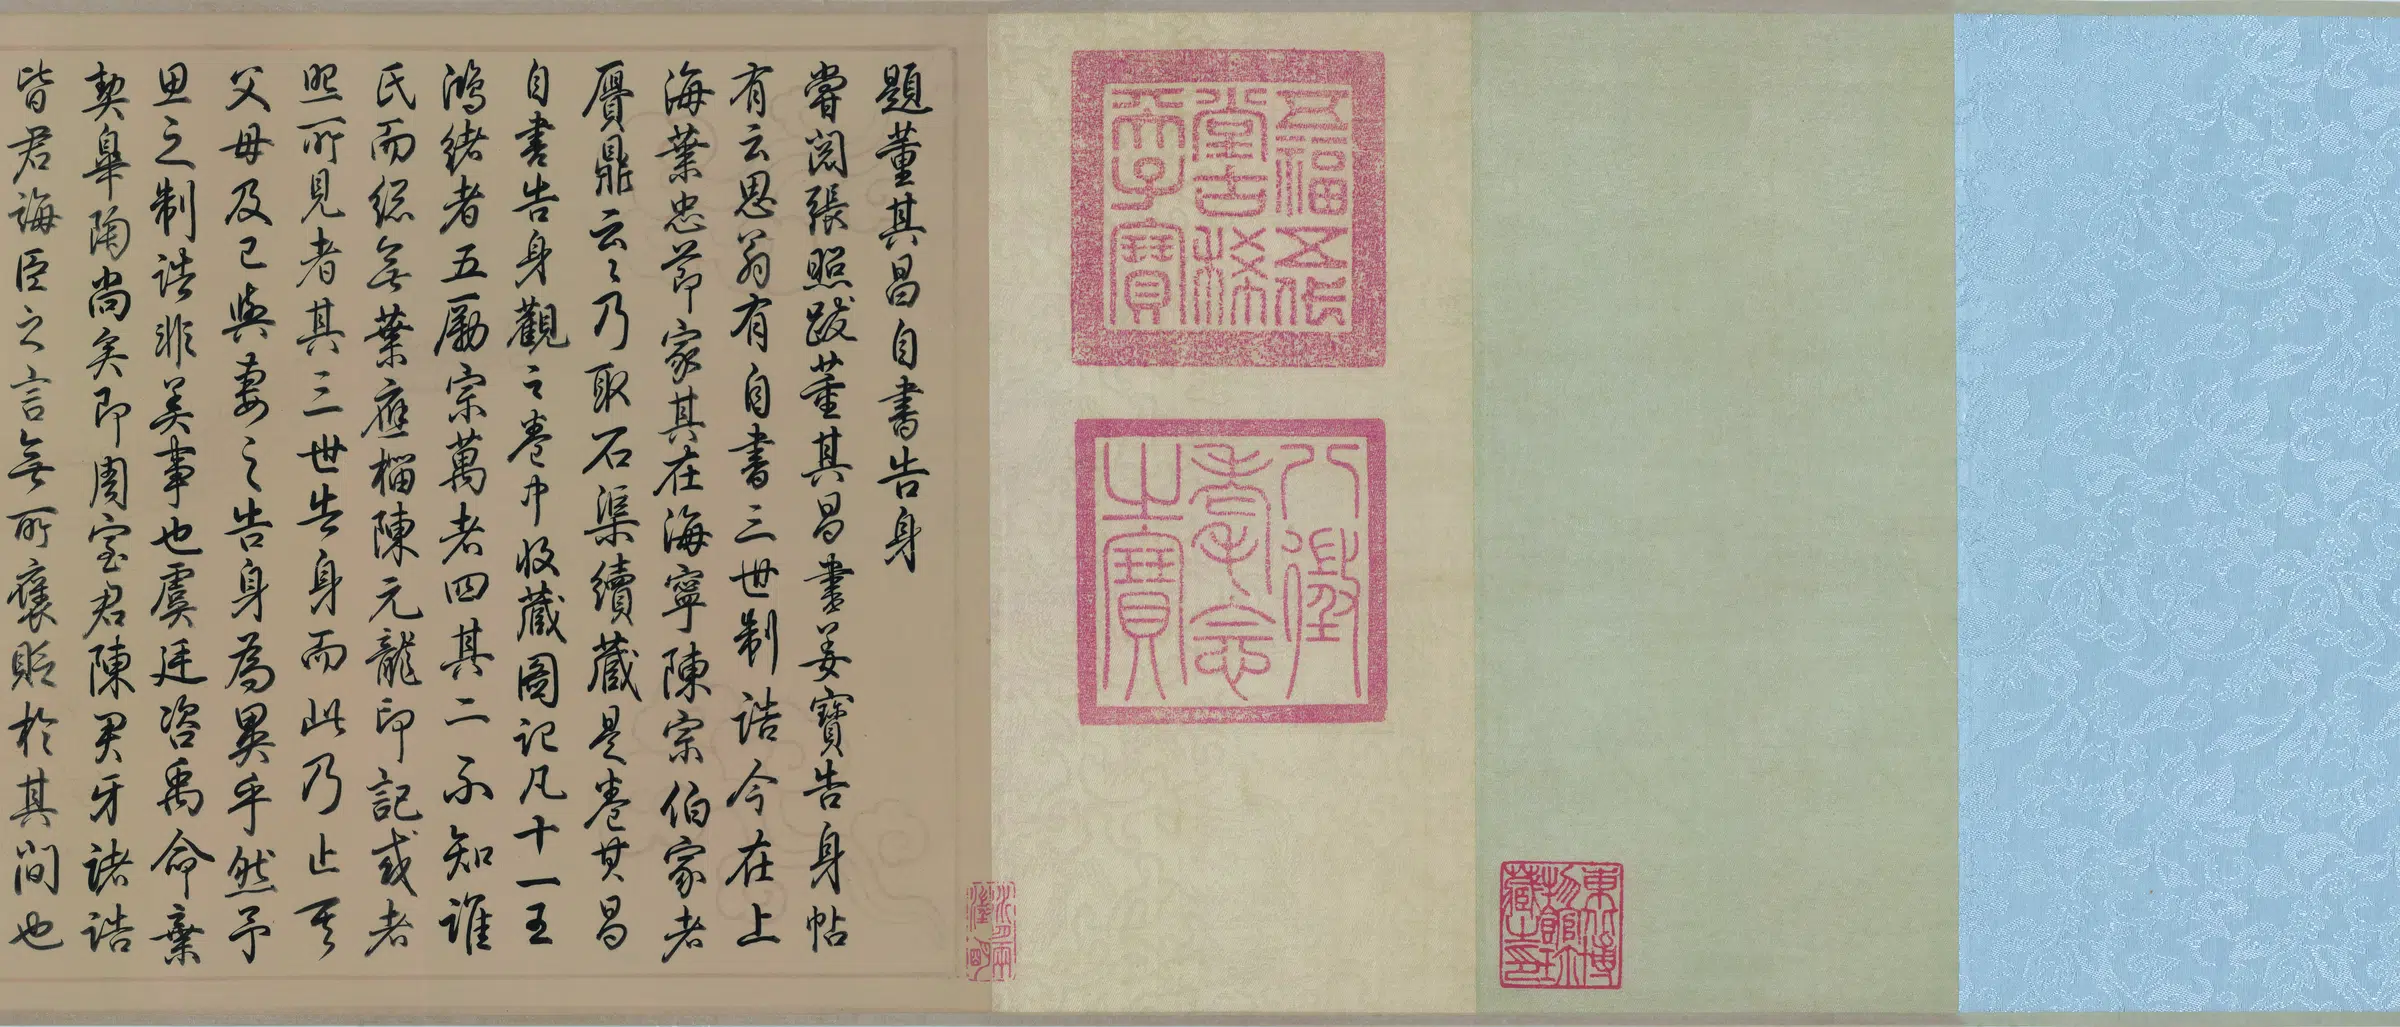 五福五代
堂古稀
天子寶
八徵
耄念
之寶
東北博
物館珍
藏之印
題董其昌自書告身
嘗閱張照跋董其昌書姜寶告身帖
有云思翁有自書三世制誥今在上
海葉忠節家其在海寧陳宗伯家者
贗鼎云云乃取石渠續藏是卷其昌
自書告身觀之卷中收藏圖記凡十一王
鴻緒者五勵宗萬者四其二不知誰
氏而總無葉應榴陳元龍印記或者
照所見者其三世告身而此乃止其
父母及己與妻之告身為異乎然予
思之制誥非美事也虞廷咨禹命棄
契皋陶尚矣即周室君陳君牙諸誥
皆君誨臣之言無所褒貶於其間也